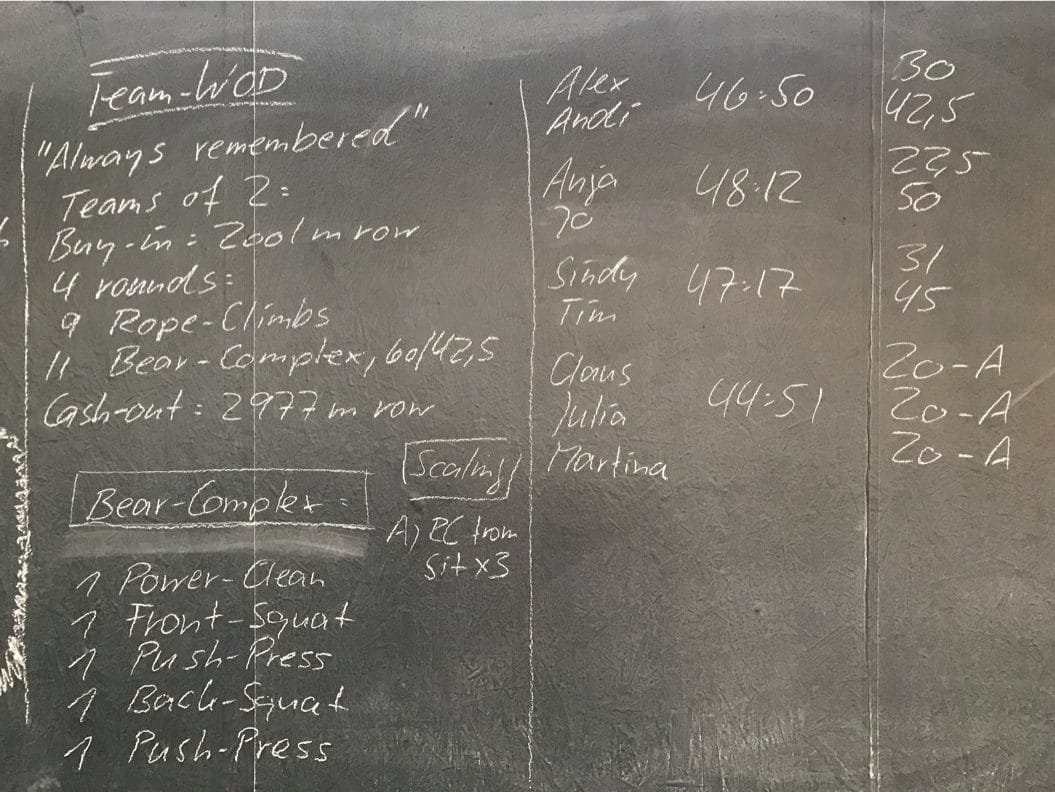 Team-WOD
"Always remembered"
Teams of 2:
Buy-in: 2001 m row
4 rounds:
9 Rope-Climbs
11 Bear-Complex, 60/42,5
Cash-out: 2977 m row
Bear-Complex:
1 Power-Clean
1 Front-Squat
1 Push-Press
1 Back-Squat
1 Push-Press
Scaling
A) RC from
sit x3
Alex 46:50 30
Andi 42,5
Anja 48:12 22,5
Jo 50
Sindy 47:17 31
Tim 45
Claus 20-A
Julia 44:51 20-A
Martina 20-A